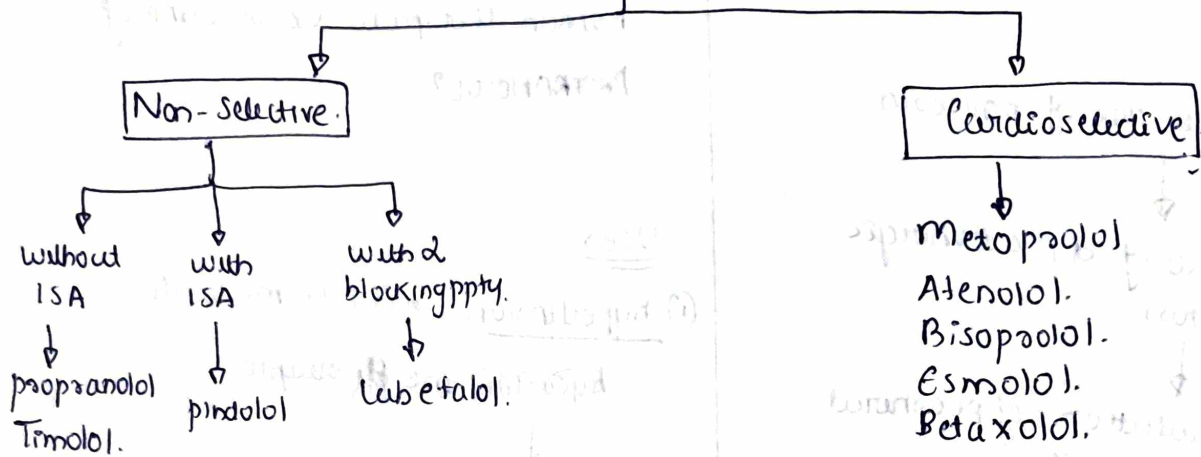 Non-selective.
Cardioselective
without
ISA
with
ISA
with α
blocking ppty.
propranolol
Timolol.
pindolol
Labetalol.
Metoprolol
Atenolol.
Bisoprolol.
Esmolol.
Betaxolol.